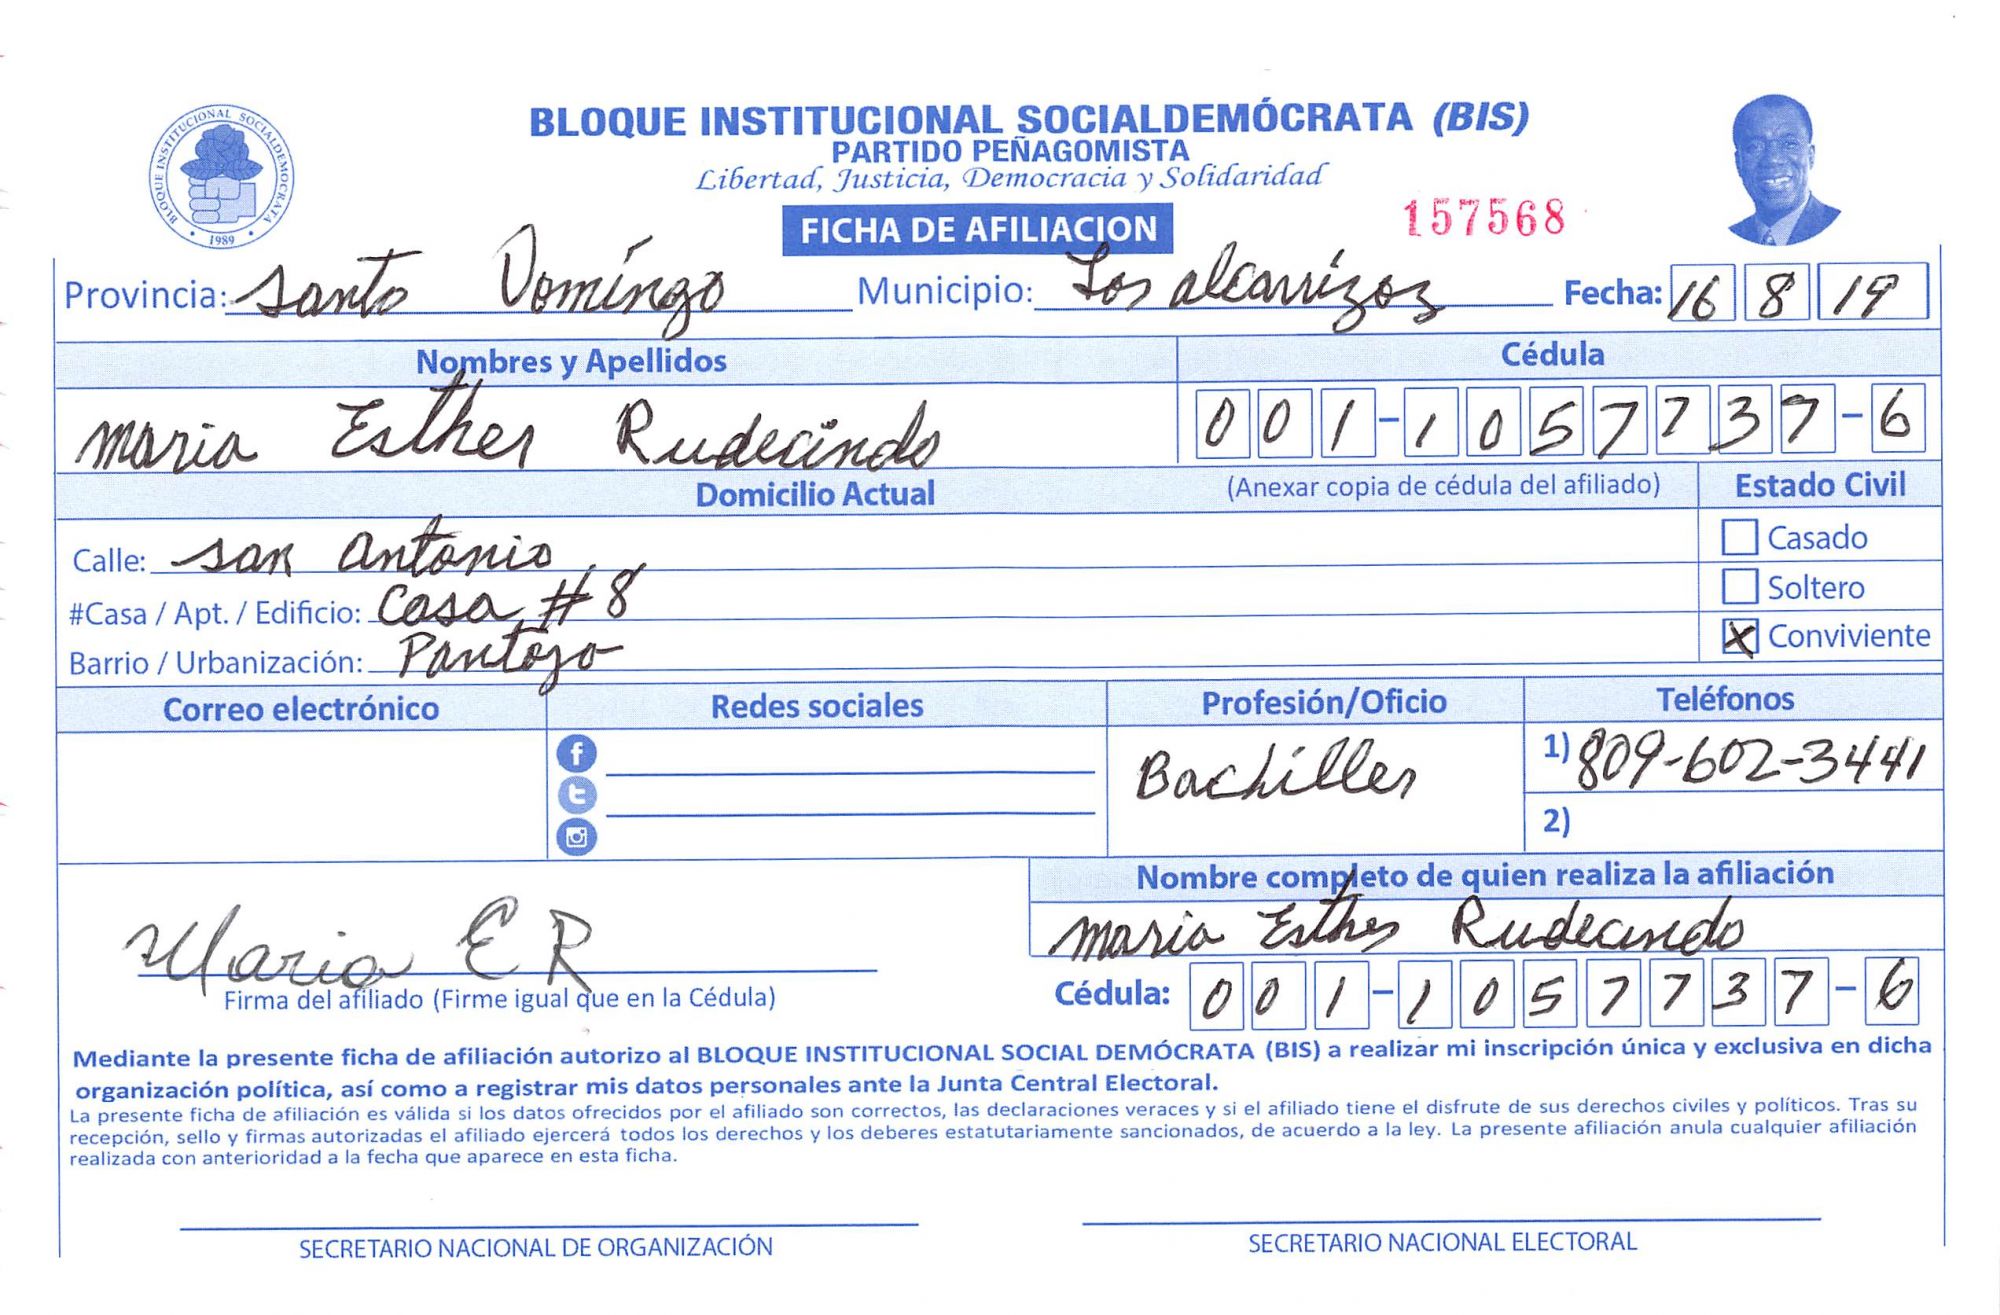 BLOQUE INSTITUCIONAL SOCIALDEMÓCRATA (BIS)
PARTIDO PEÑAGOMISTA
Libertad, Justicia, Democracia y Solidaridad
BLOQUE INSTITUCIONAL SOCIALDEMOCRATA
1989
FICHA DE AFILIACION
157568
Provincia: Santo Domingo Municipio: Los alcarrizoz Fecha: 16 8 19
Nombres y Apellidos Cédula
Maria Esther Rudecindo 001-1057737-6
Domicilio Actual (Anexar copia de cédula del afiliado) Estado Civil
Calle: San Antonio Casado
#Casa / Apt. / Edificio: Casa #8 Soltero
Barrio / Urbanización: Pantojo X Conviviente
Correo electrónico Redes sociales Profesión/Oficio Teléfonos
Bachiller 1) 809-602-3441
2)
Nombre completo de quien realiza la afiliación
Maria Esther Rudecindo
Maria E R
Firma del afiliado (Firme igual que en la Cédula) Cédula: 001-1057737-6
Mediante la presente ficha de afiliación autorizo al BLOQUE INSTITUCIONAL SOCIAL DEMÓCRATA (BIS) a realizar mi inscripción única y exclusiva en dicha
organización política, así como a registrar mis datos personales ante la Junta Central Electoral.
La presente ficha de afiliación es válida si los datos ofrecidos por el afiliado son correctos, las declaraciones veraces y si el afiliado tiene el disfrute de sus derechos civiles y políticos. Tras su
recepción, sello y firmas autorizadas el afiliado ejercerá todos los derechos y los deberes estatutariamente sancionados, de acuerdo a la ley. La presente afiliación anula cualquier afiliación
realizada con anterioridad a la fecha que aparece en esta ficha.
SECRETARIO NACIONAL DE ORGANIZACIÓN SECRETARIO NACIONAL ELECTORAL